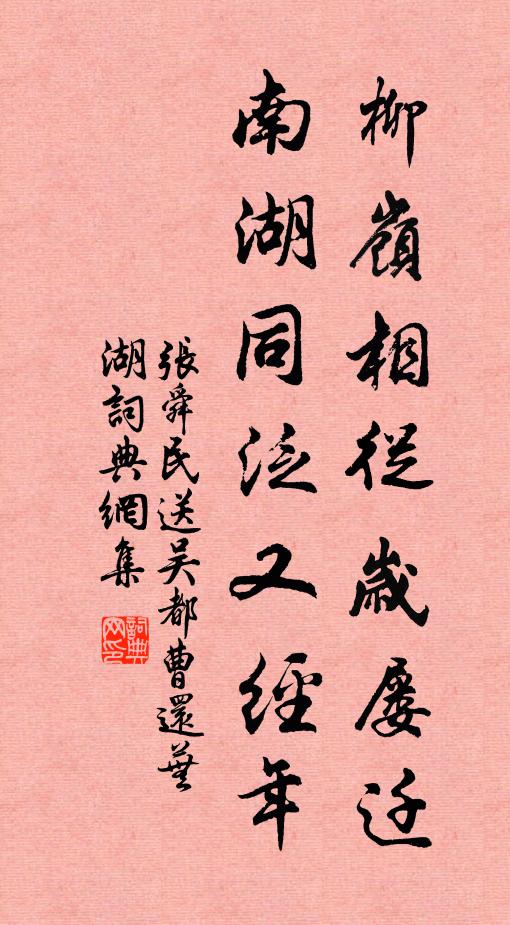 柳嶺相從歲屢迁
南湖同泛又經年
張舜民送吴都曹還蕪
湖詞典網集
詞典网印